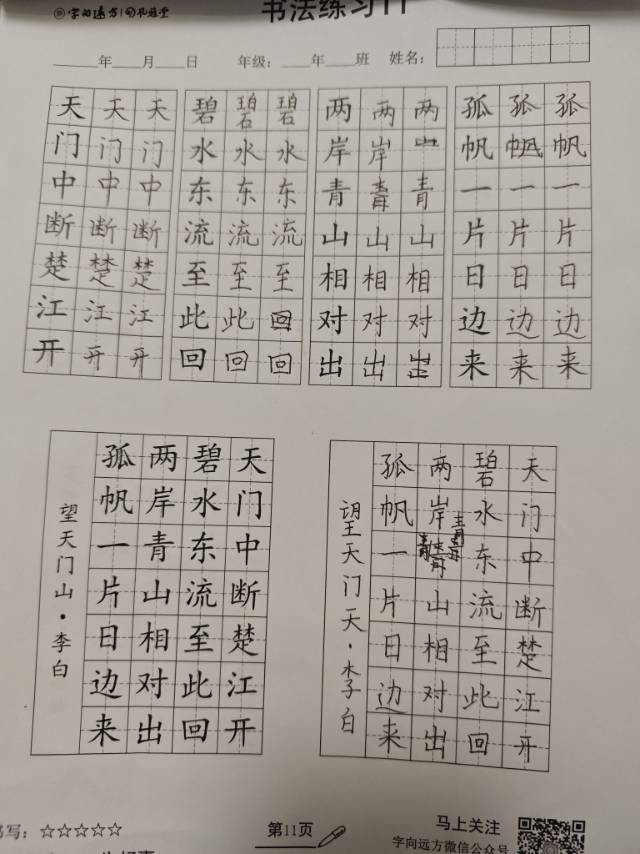 字向远方
书法练习11
年 月 日 年级: 年 班 姓名:
天门中断楚江开
天门中断楚江开
天门中断楚江开
碧水东流至此回
碧水东流至此回
碧水东流至回回
两岸青山相对出
两岸青山相对出
两青山相对出
孤帆一片日边来
孤帆一片日边来
孤帆一片日边来
天门中断楚江开
碧水东流至此回
两岸青山相对出
孤帆一片日边来
望天门山·李白
天门中断楚江开
碧水东流至此回
两岸青山相对出
孤帆一片日边来
望天门天·李白
书写:☆☆☆☆☆
第11页
马上关注
字向远方微信公众号